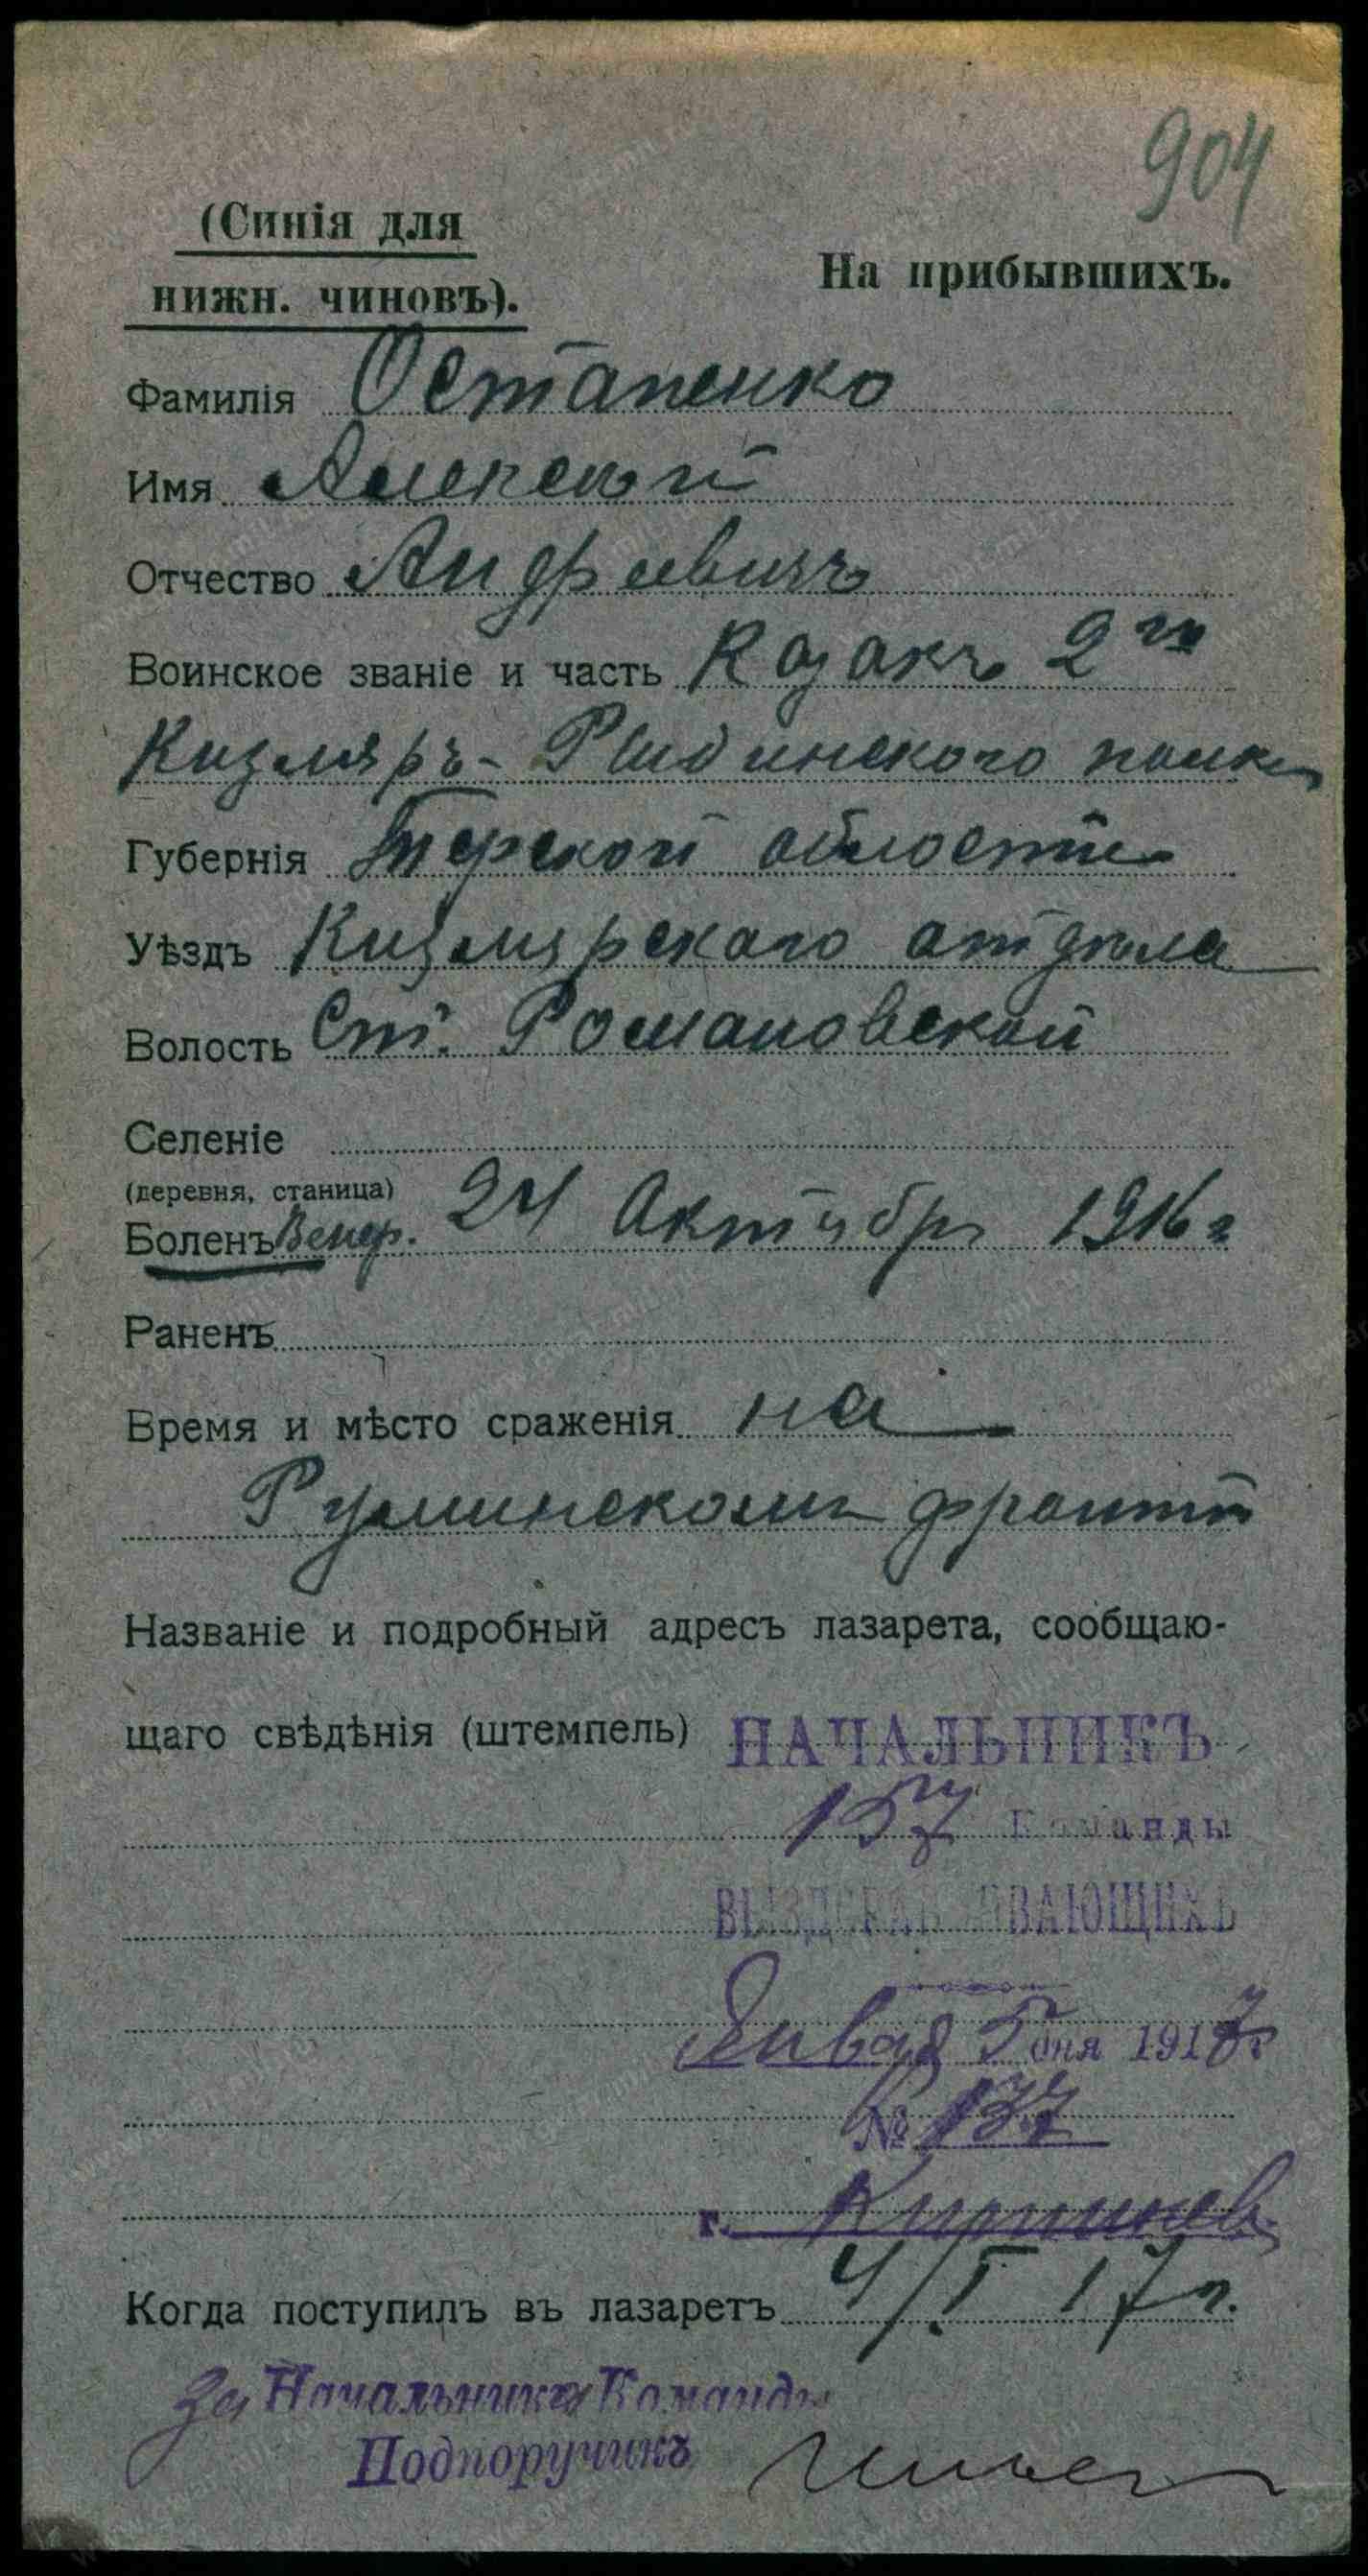 904
(Синія для
нижн. чиновъ).
На прибывшихъ.
Фамилія Остапенко
Имя Алексѣй
Отчество Андреевичъ
Воинское званіе и часть Козакъ 2го
Кизляръ-Гребинского полка
Губернія Терской области
Уѣздъ Кизлярскаго отдѣла
Волость Ст. Романовской
Селеніе
(деревня, станица)
Боленъ Венер. 24 Октября 1916 г
Раненъ
Время и мѣсто сраженія на
Руминскомъ фронтѣ
Названіе и подробный адресъ лазарета, сообщаю-
щаго свѣдѣнія (штемпель) НАЧАЛЬНИКЪ
157 Команды
ВЫЗДОРАВЛИВАЮЩИХЪ
Января 5 дня 1917 г
№ 137
г. Кишинев
Когда поступилъ въ лазаретъ 4/I 17 г.
За Начальника Команды
Подпоручикъ